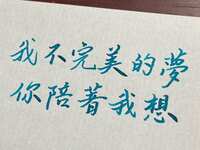 我不完美的夢
你陪著我想